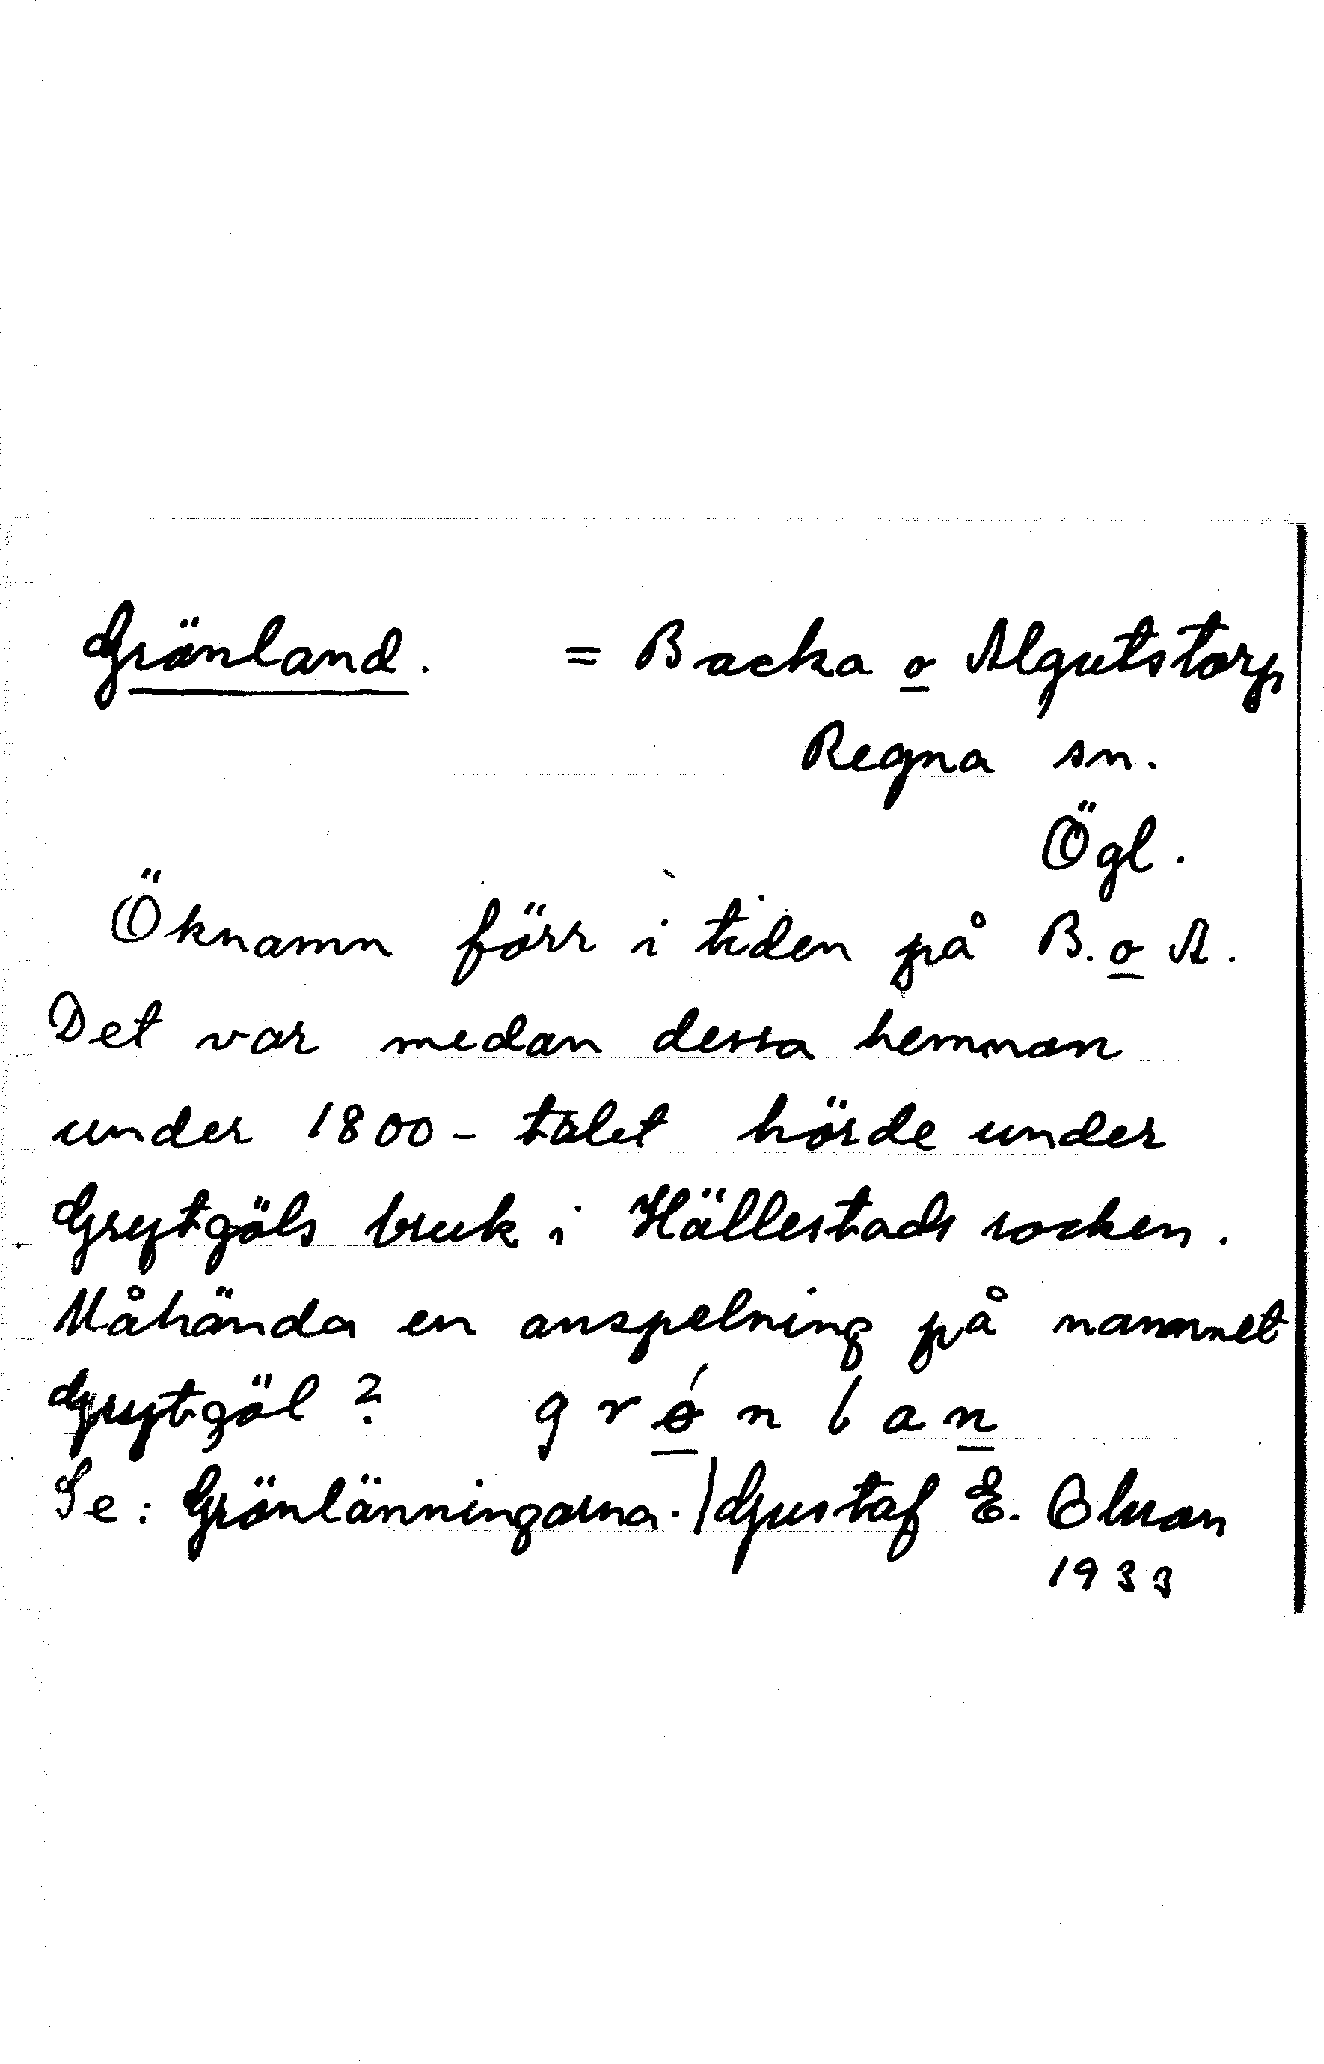 Grönland. = Backa o Algutstorp
Regna sn.
Ögl.
Öknamn förr i tiden på B. o A.
Det var medan dessa hemman
under 1800-talet hörde under
Grytgöls bruk i Hällestads socken.
Måhända en anspelning på namnet
Grytgöl? grǿnlan
Se: Grönlänningarna. / Gustaf E. Olsson
1933